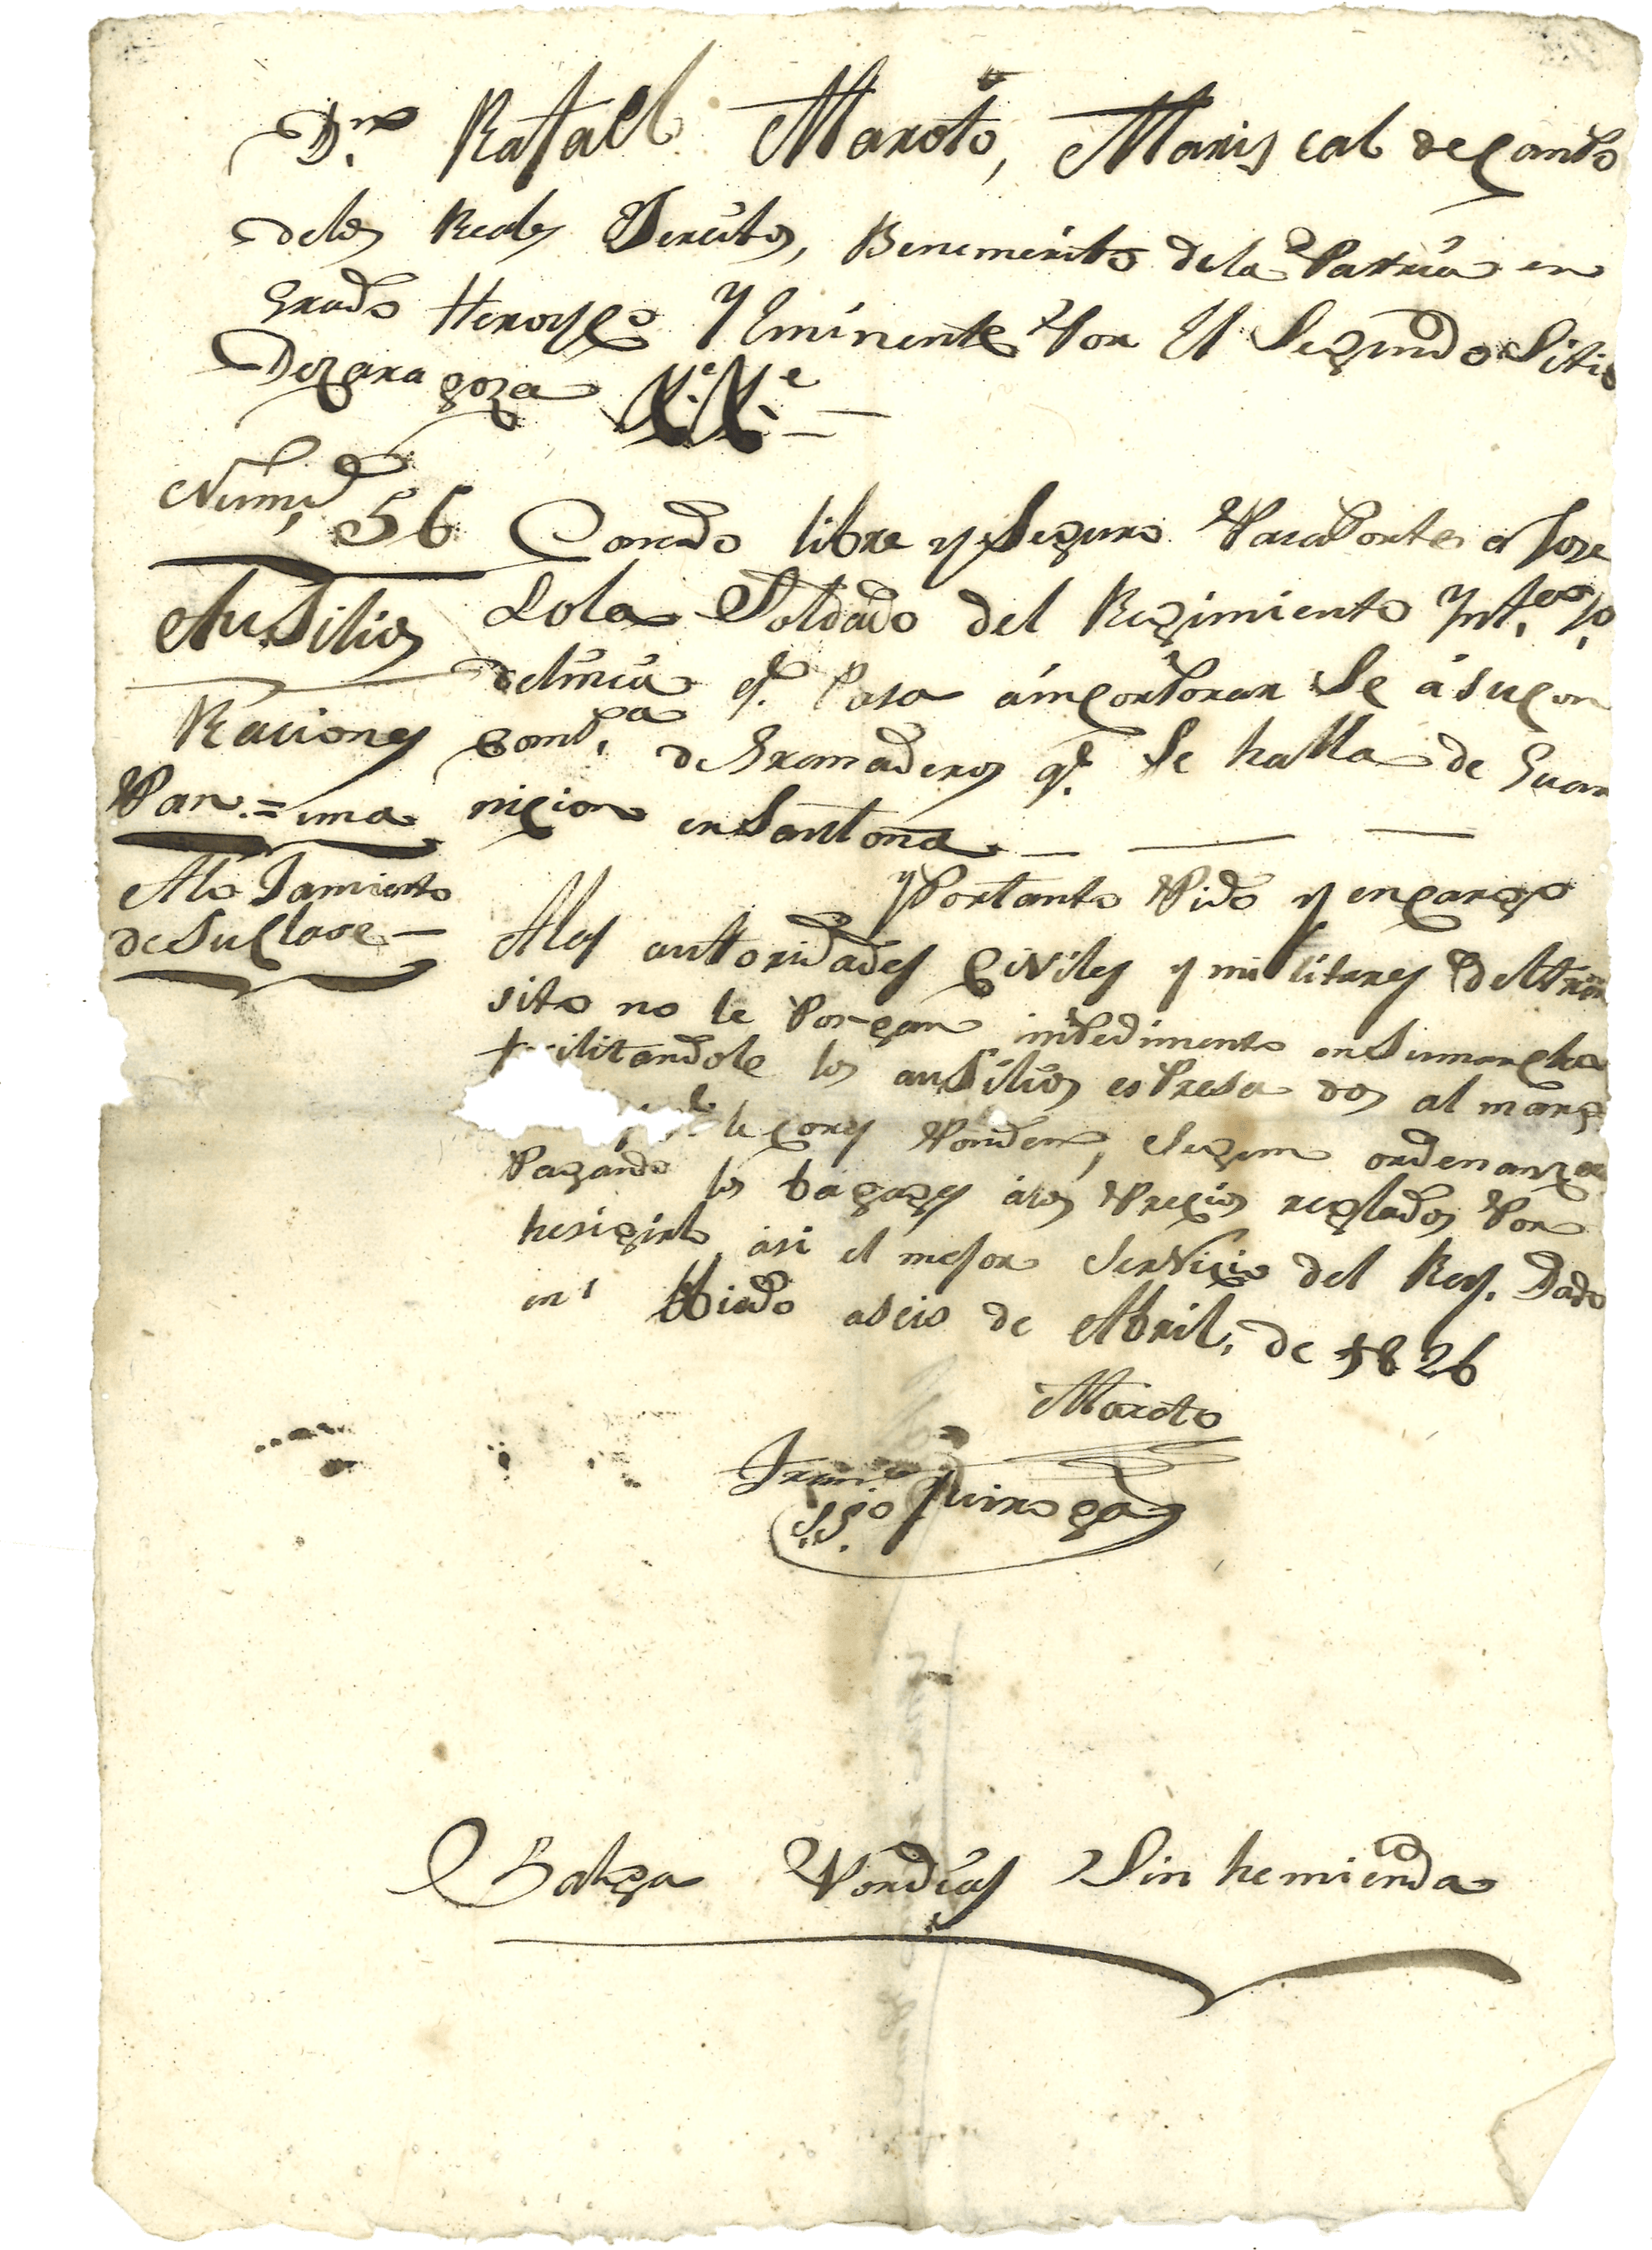 Dn. Rafael Maroto, Mariscal de Campo
de los Reales Jercitos, Benemerito de la Patria en
Grado Heroyco Y Eminente Por El Segundo Sitio
De zaragoza &c. &c.
Num. 56
Ausilios
Raciones
Pan = una
Alo Jamiento
de Su Clase
Concedo libre y Seguro PasaPorte a Jose
Lola Soldado del Regimiento Ynfa.
de linia q. Pasa áincorPorar Se á su com
comp.a de Granaderos q. Se halla de Guar
nicion en Santoña
y Por tanto Pido y encargo
Alas auttoridades Civiles y militares del tran
sito no le Pongan inPedimento en Su marcha
ilitandole los ausilios esPresa dos al marg
le corres Ponden, Segun ordenanza
Pagando los bagages álos Precios reglados Por
hesigirlo asi el mejor Servicio del Rey. Dado
en Obiedo a seis de Abril, de 1826
Maroto
Franco Quiroga
SSo
Balga Por dias Sin hemienda